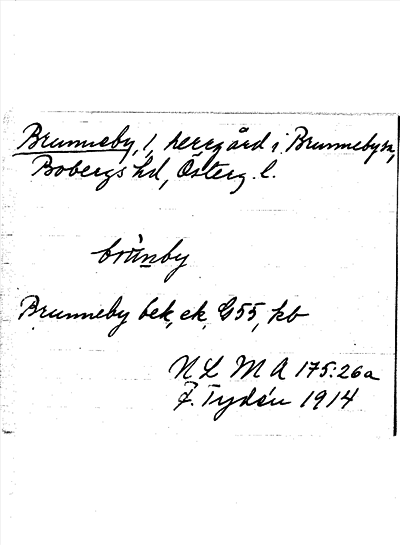 Brunneby, 1, herrgård i Brunneby sn,
Bobergs hd, Österg. l.
brùnby
Brunneby bek, ek, G55, kb
N L M A 175:26a
F. Tydén 1914